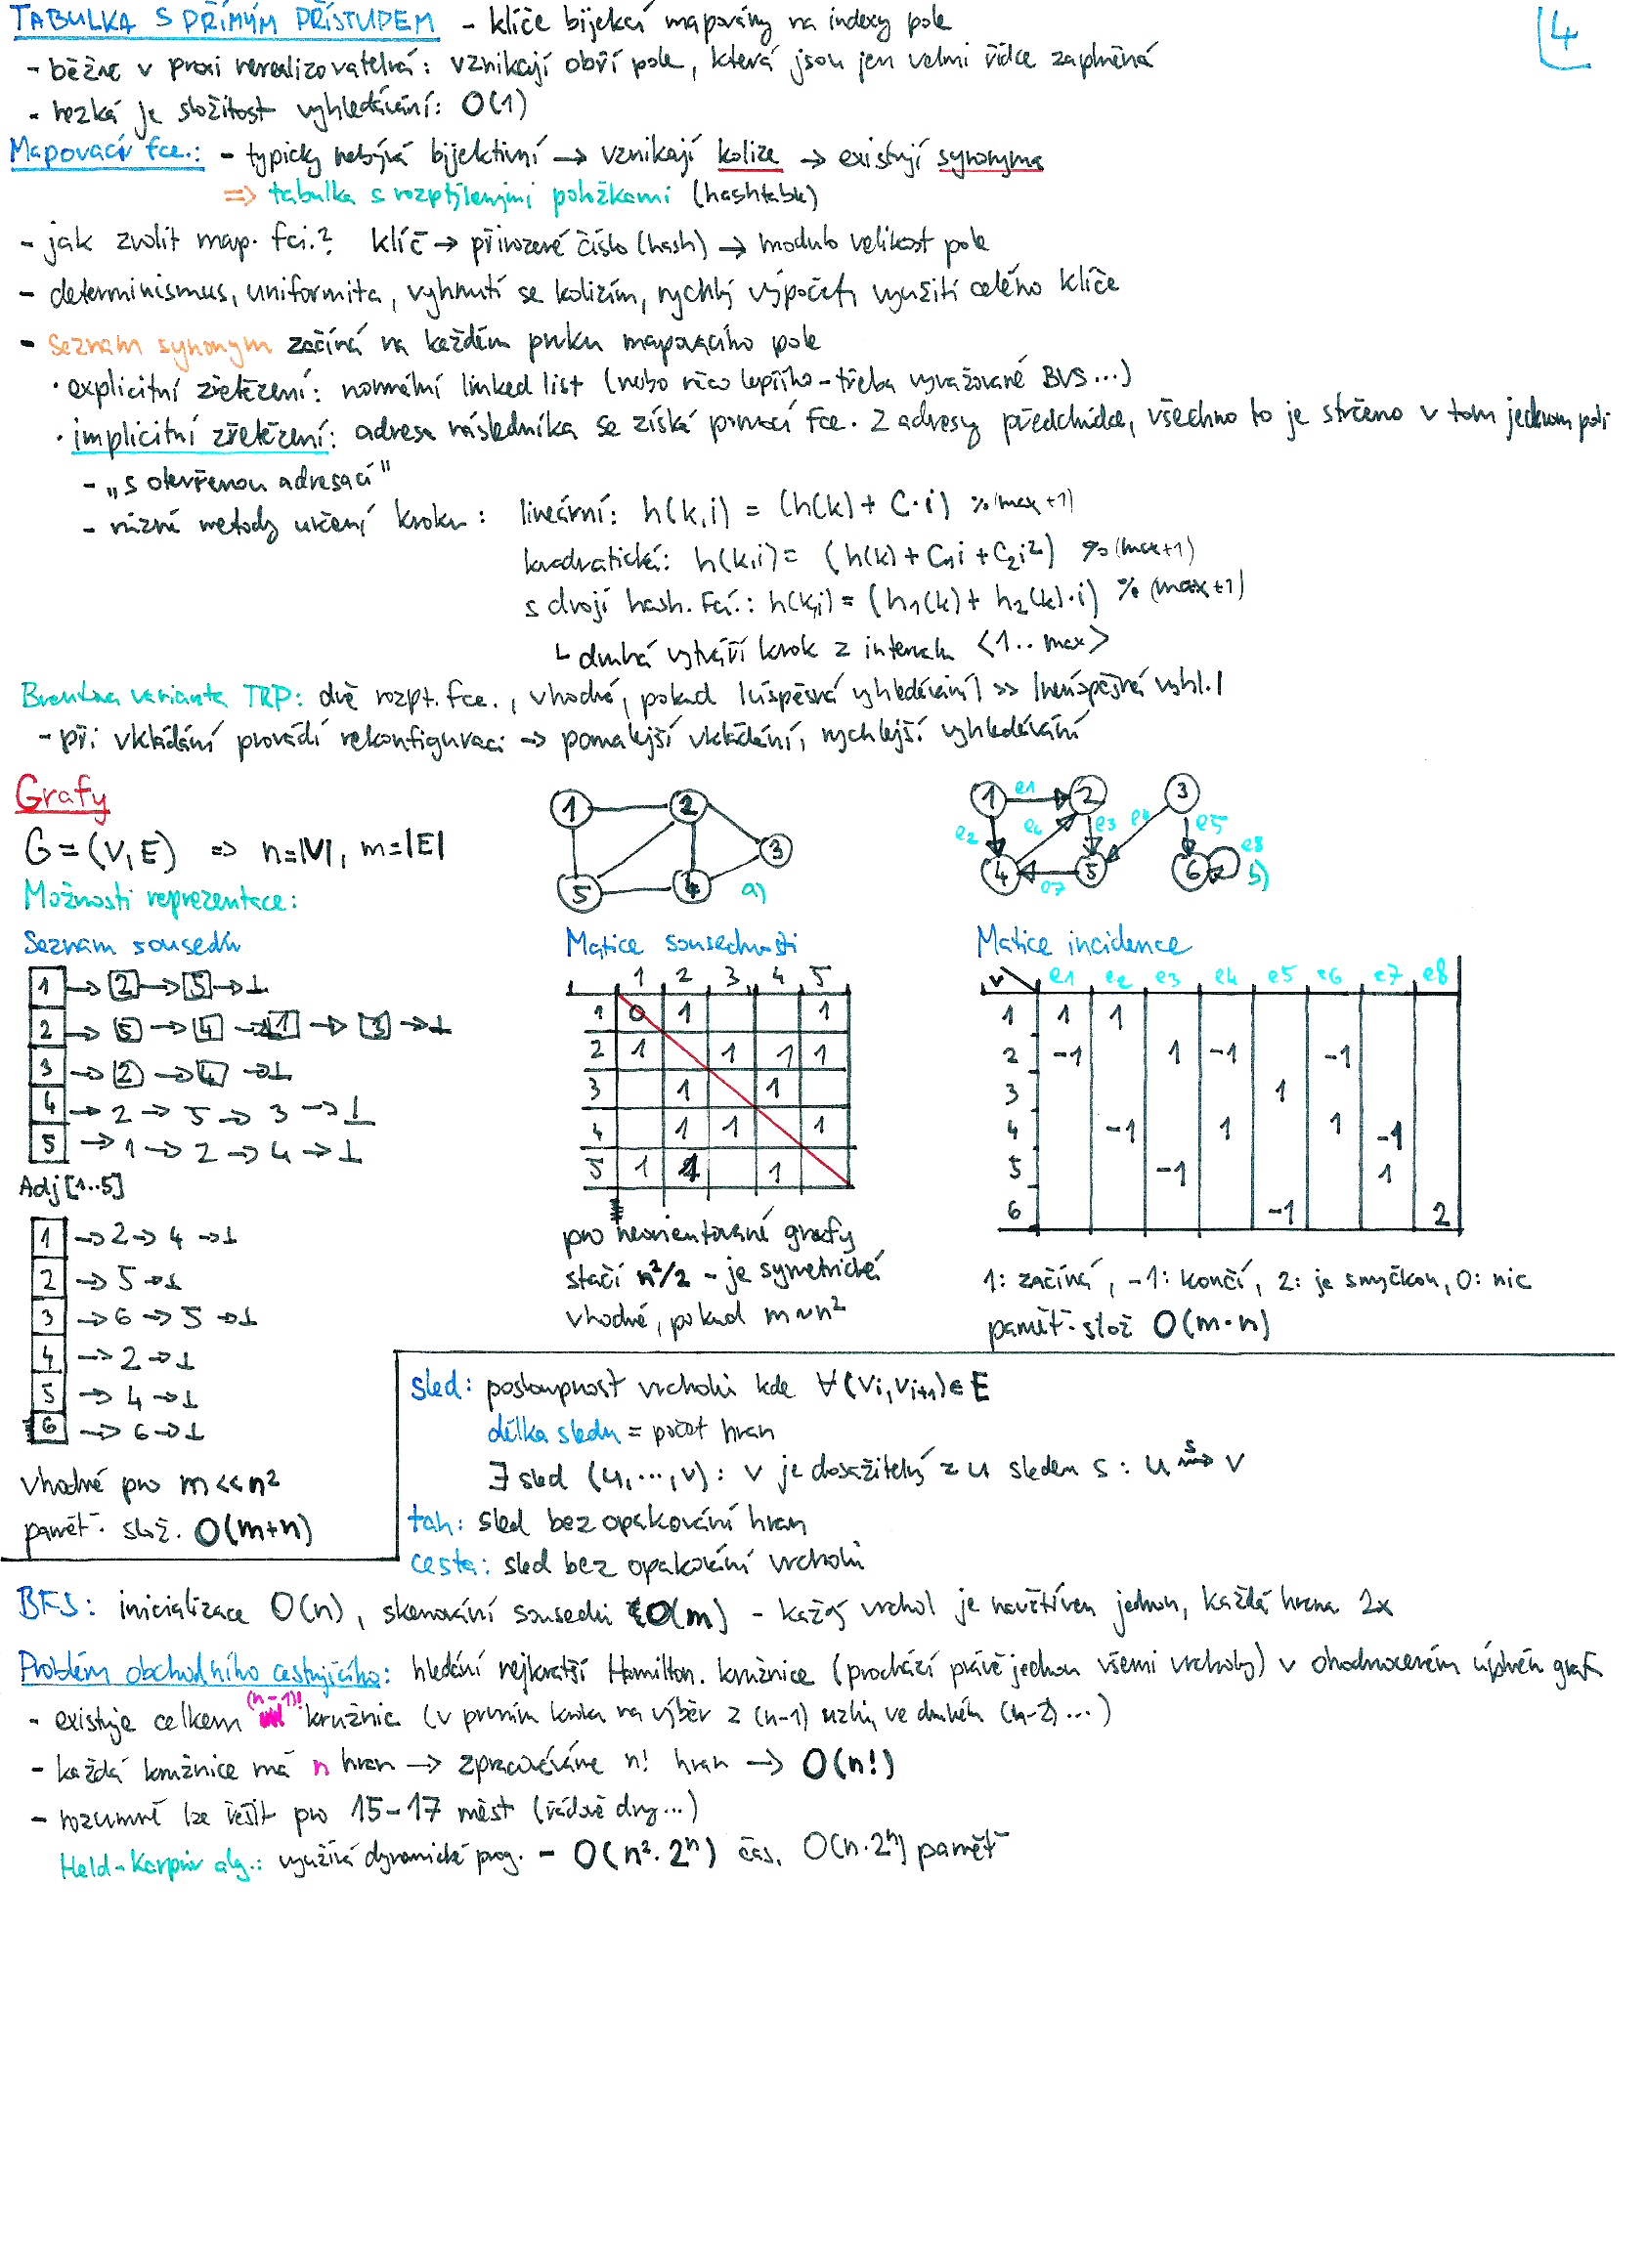 TABULKA S PŘÍMÝM PŘÍSTUPEM - klíče bijekcí mapovány na indexy pole
4
- běžně v praxi nerealizovatelná: vznikají obří pole, která jsou jen velmi řídce zaplněná
- hezká je složitost vyhledávání: O(1)
Mapovací fce.: - typicky nebývá bijektivní → vznikají kolize → existují synonyma
⇒ tabulka s rozptýlenými položkami (hashtable)
- jak zvolit map. fci.? klíč → přirozené číslo (hash) → modulo velikost pole
- determinismus, uniformita, vyhnutí se kolizím, rychlý výpočet, využití celého klíče
- Seznam synonym začíná na každém prvku mapovacího pole
· explicitní zřetězení: normální linked list (nebo něco lepšího - třeba vyvažované BVS...)
· implicitní zřetězení: adresa následníka se získá pomocí fce. z adresy předchůdce, všechno to je strčeno v tom jednom poli
- „s otevřenou adresací"
- různé metody určení kroku: lineární: h(k,i) = (h(k) + C·i) % (max+1)
kvadratická: h(k,i) = (h(k) + C₁i + C₂i²) % (max+1)
s dvojí hash. fcí.: h(k,i) = (h₁(k) + h₂(k)·i) % (max+1)
↳ druhá vytváří krok z intervalu <1..max>
Brentova varianta TRP: dvě rozpt. fce., vhodná, pokud |úspěšná vyhledávání| >> |neúspěšná vyhl.|
- při vkládání provádí rekonfiguraci → pomalejší vkládání, rychlejší vyhledávání
Grafy
G = (V,E) ⇒ n=|V|, m=|E|
1 2 3 5 4 a)
1 e1 2 3 e2 e6 e3 e4 e5 4 e7 5 6 e8 b)
Možnosti reprezentace:
Seznam sousedů
1 → 2 → 5 → ⊥
2 → 5 → 4 → 1 → 3 → ⊥
3 → 2 → 4 → ⊥
4 → 2 → 5 → 3 → ⊥
5 → 1 → 2 → 4 → ⊥
Adj[1..5]
1 → 2 → 4 → ⊥
2 → 5 → ⊥
3 → 6 → 5 → ⊥
4 → 2 → ⊥
5 → 4 → ⊥
6 → 6 → ⊥
vhodné pro m << n²
paměť. slož. O(m+n)
Matice sousednosti
1 2 3 4 5
1 0 1 1
2 1 1 1 1
3 1 1
4 1 1 1
5 1 1 1
pro neorientované grafy
stačí n²/2 - je symetrická
vhodné, pokud m ~ n²
Matice incidence
v e1 e2 e3 e4 e5 e6 e7 e8
1 1 1
2 -1 1 -1 -1
3 1
4 -1 1 1 -1
5 -1 1
6 -1 2
1: začíná, -1: končí, 2: je smyčkou, 0: nic
paměť. slož O(m·n)
sled: posloupnost vrcholů kde ∀(vi, vi+1) ∈ E
délka sledu = počet hran
∃ sled (u,...,v): v je dosažitelný z u sledem s: u s→ v
tah: sled bez opakování hran
cesta: sled bez opakování vrcholů
BFS: inicializace O(n), skenování sousedů O(m) - každý vrchol je navštíven jednou, každá hrana 2x
Problém obchodního cestujícího: hledání nejkratší Hamilton. kružnice (prochází právě jednou všemi vrcholy) v ohodnoceném úplném grafu
- existuje celkem (n-1)! kružnic (v prvním kroku na výběr z (n-1) uzlů, ve druhém (n-2) ...)
- každá kružnice má n hran → zpracováváme n! hran → O(n!)
- rozumně lze řešit pro 15-17 měst (řádově dny...)
Held-Karpův alg.: využívá dynamické prog. - O(n²·2ⁿ) čas, O(n·2ⁿ) paměť